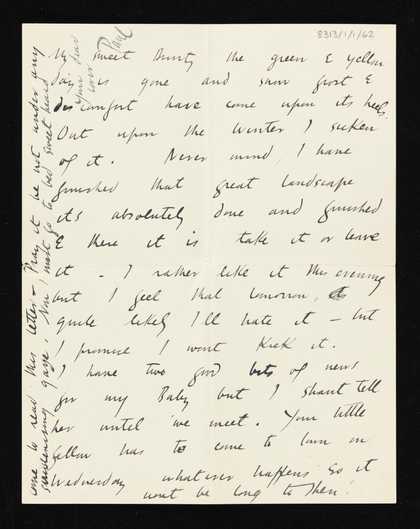 8313/1/1/62
My sweet Bunty the green & yellow
day is gone and snow frost &
discomfort have come upon its heels.
Out upon the winter I sicken
of it. Never mind, I have
finished that great landscape
its absolutely done and finished
& there it is take it or leave
it - I rather like it this evening
but I feel that tomorrow,
quite likely I'll hate it - but
I promise I wont kick it.
I have two good bits of news
for my Baby but I shant tell
her until we meet. Your little
fellow has to come to town on
Wednesday whatever happens so it
wont be long to then!
come to read this letter - Pray it be not under any
gaze. Now I must go to bed sweet heart
Your dear
lover
Paul